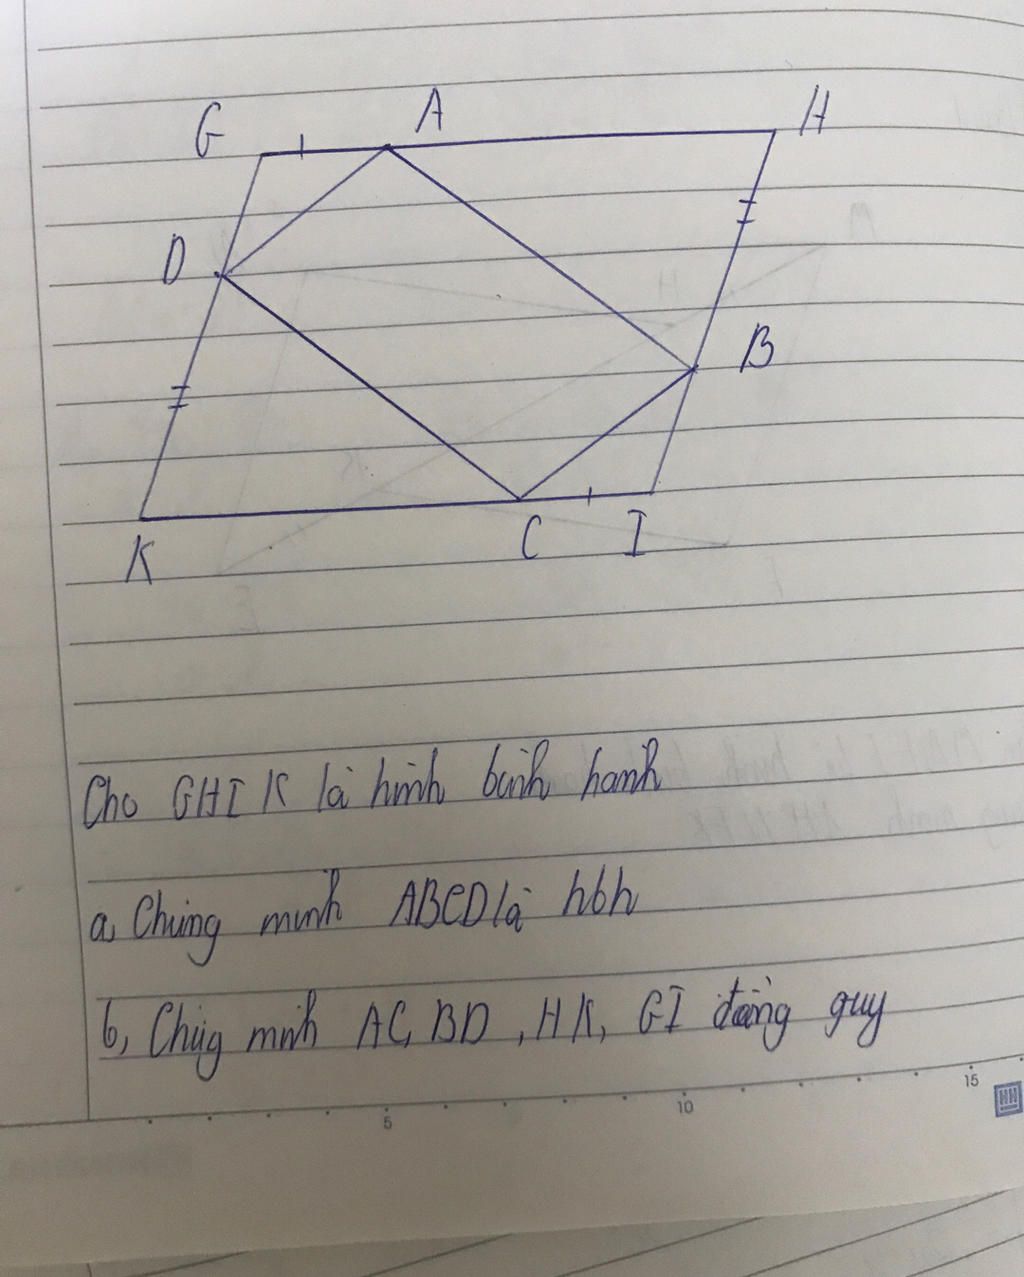 G A H
D
B
K C I
Cho GHIK là hình bình hành
a, Chứng minh ABCD là hbh
b, Chứg mnh AC, BD, HK, GI đồng quy
5 10 15